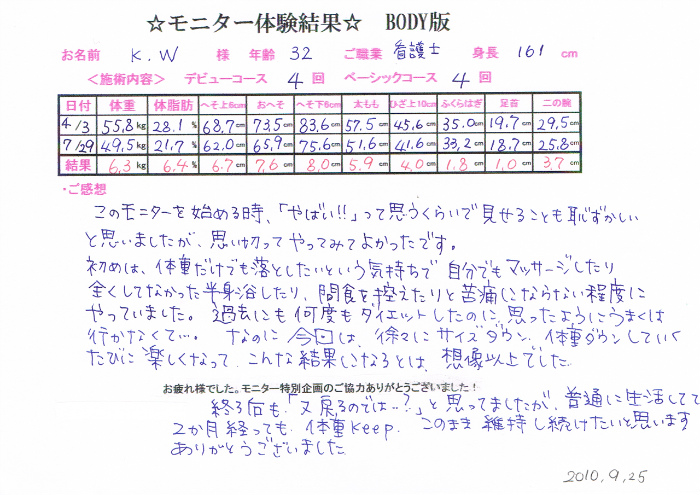 ☆モニター体験結果☆ BODY版
お名前 K.W 様 年齢 32 ご職業 看護士 身長 161 cm
＜施術内容＞ デビューコース 4 回 ベーシックコース 4 回
日付 体重 体脂肪 へそ上6cm おへそ へそ下6cm 太もも ひざ上10cm ふくらはぎ 足首 二の腕
4/3 55.8kg 28.1% 68.7cm 73.5cm 83.6cm 57.5cm 45.6cm 35.0cm 19.7cm 29.5cm
7/29 49.5kg 21.7% 62.0cm 65.9cm 75.6cm 51.6cm 41.6cm 33.2cm 18.7cm 25.8cm
結果 6.3kg 6.4% 6.7cm 7.6cm 8.0cm 5.9cm 4.0cm 1.8cm 1.0cm 3.7cm
・ご感想
このモニターを始める時、「やばい!!」って思うくらいで見せることも恥ずかしい
と思いましたが、思い切ってやってみてよかったです。
初めは、体重だけでも落としたいという気持ちで自分でもマッサージしたり
全くしてなかった半身浴したり、間食を控えたりと苦痛にならない程度に
やっていました。過去にも何度もダイエットしたのに、思ったようにうまくは
行かなくて…。なのに今回は、徐々にサイズダウン、体重ダウンしていく
たびに楽しくなって、こんな結果になるとは、想像以上でした。
お疲れ様でした。モニター特別企画のご協力ありがとうございました！
終る后も「又戻るのでは…?」と思ってましたが、普通に生活してて
2か月経っても、体重keep。このまま維持し続けたいと思います
ありがとうございました。
2010,9,25